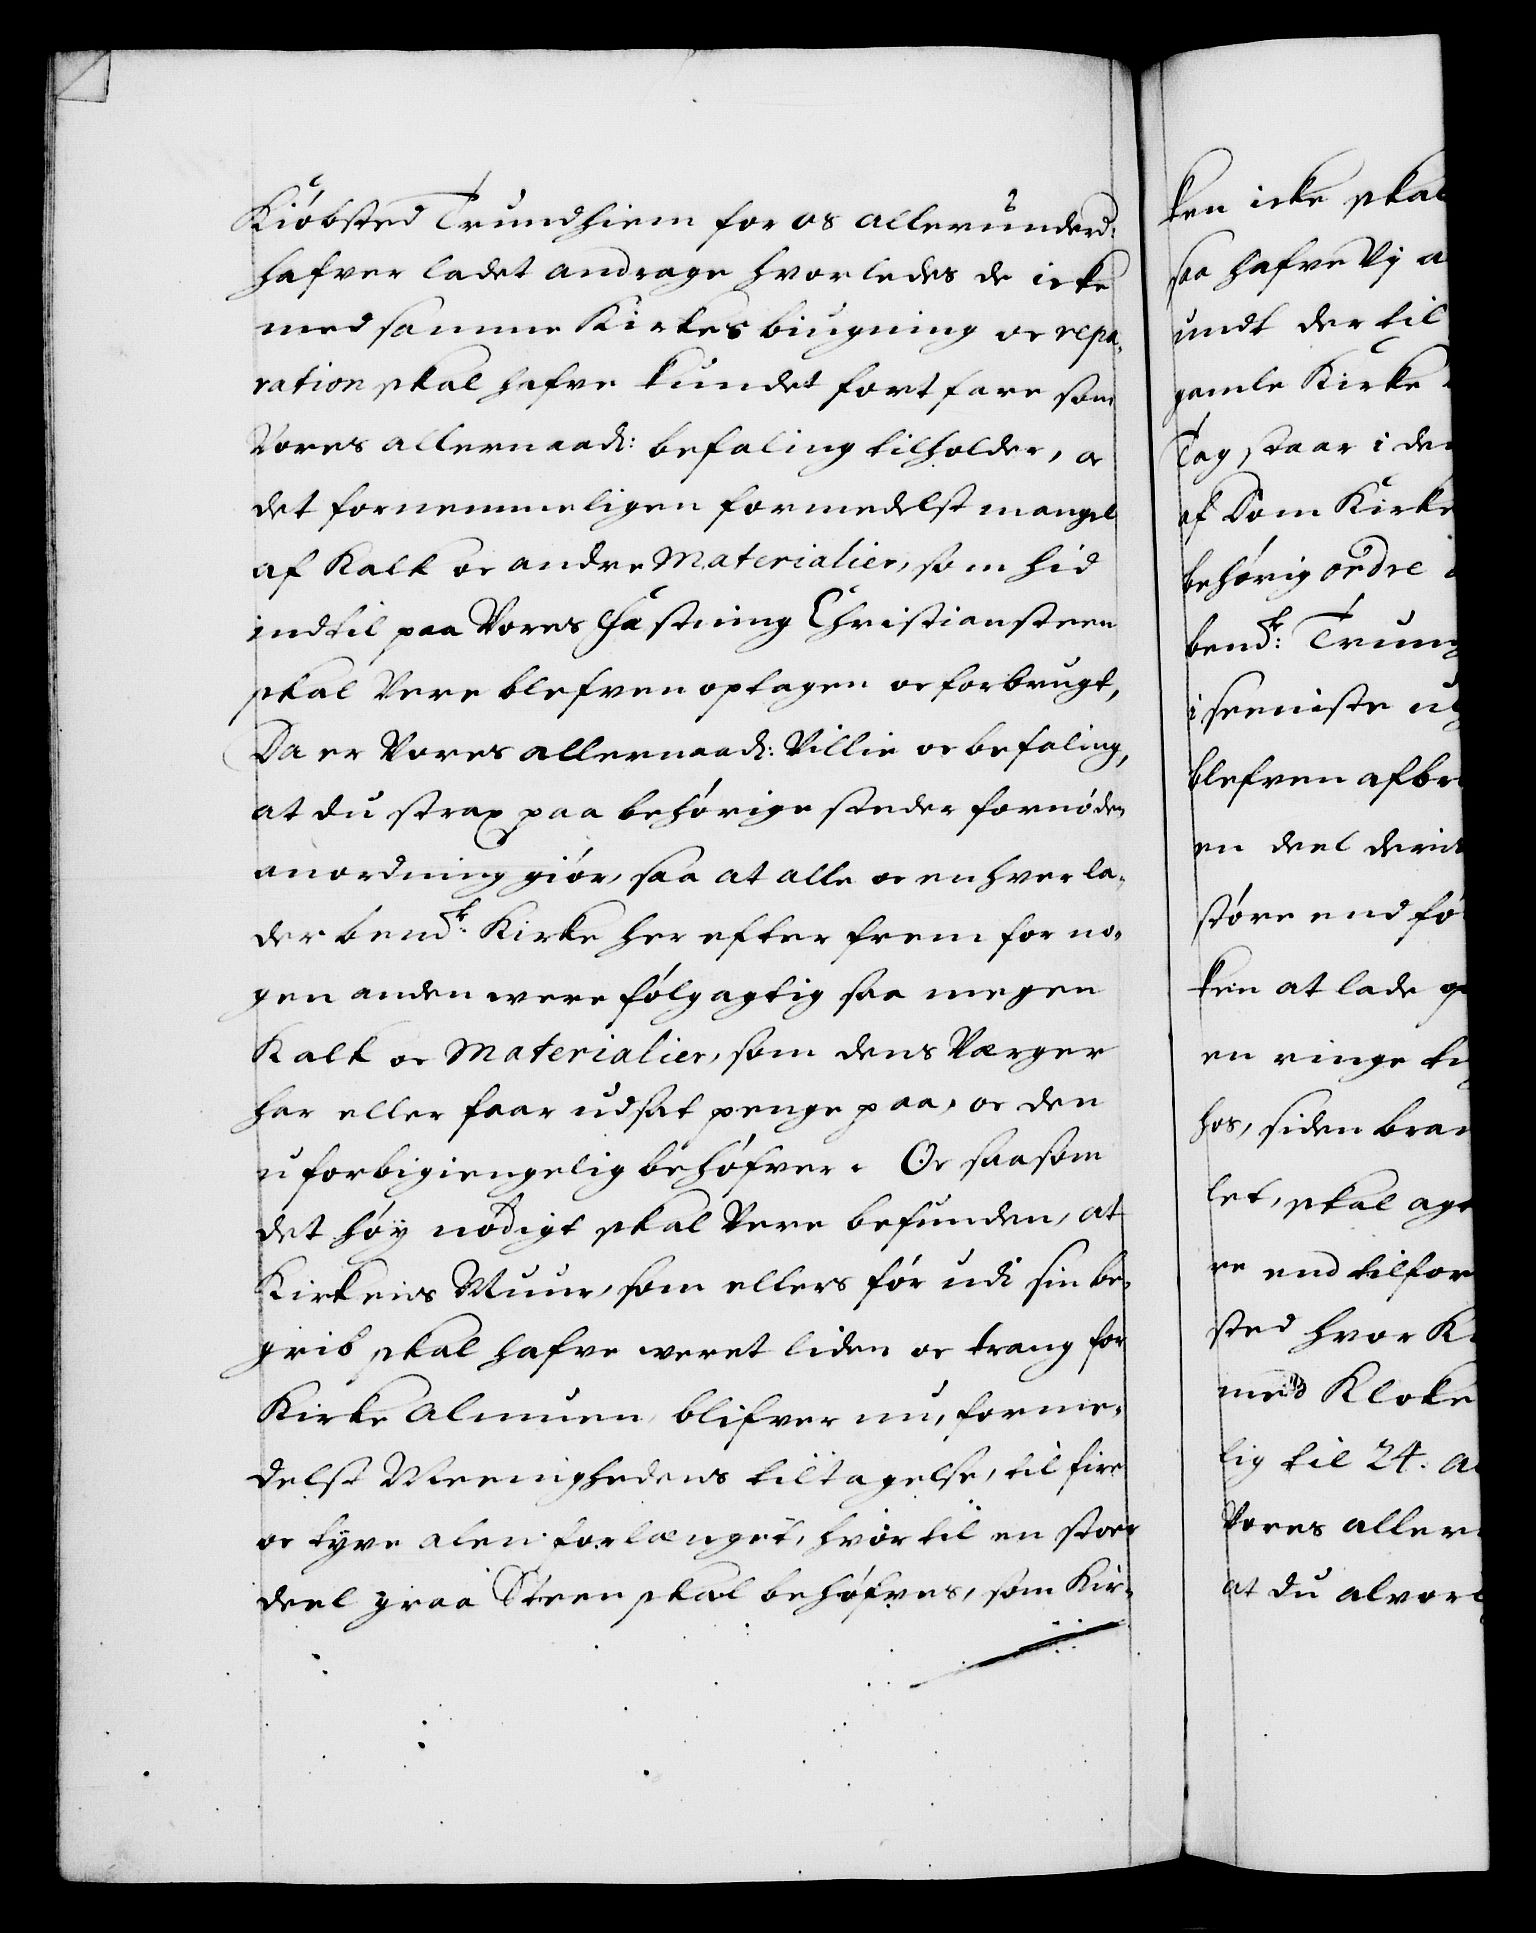 Kiöbsted Trundhiem for os allerunderd:
hafver ladet andrage hvorledes de icke
med samme Kirkes biugning oc repa-
ration skal hafve kundet fortfare som
Vores allernaad: befaling tilholder, oc
det fornemmeligen formedelst mangel
af Kalk oc andre Materialier, som hid
indtil paa Vores Fæstning Christiansteen
skal Vere blefven optagen oc forbrugt,
Da er Vores allernaad: Villie oc befaling,
at du strax paa behörige steder fornöden
anordning giör, saa at alle oc enhver la-
der bemᵗᵉ: Kirke her efter frem for no-
gen anden were fölgagtig saa megen
Kalk oc Materialier, som dens Værger
har eller faar udsat penge paa, oc den
uforbigiengelig behöfver. Oc saasom
det höy nödigt skal Vere befunden, at
Kirkens Muur, som ellers för udi sin be-
grib skal hafve weret liden oc trang for
Kirke Almuen, blifver nu, forme-
delst Meenighedens tiltagelse, til fire
oc tyve alen forlænget, hvortil en stoer
deel graa Steen skal behöfves, som Kir-
ken icke skal
saa hafve Vj a
undt der til
gamle Kirke
Tag staar i de
af Dom Kirke
behörig ordre
bemᵗᵉ: Trun
i seeniste
blefven afbr
en deel
störe end fö
ken at lade
en ringe
hos, siden bran
let, skal
re end tilfor
sted hvor K
med Kloke
lig til 24. a
Vores aller
at du alvorl